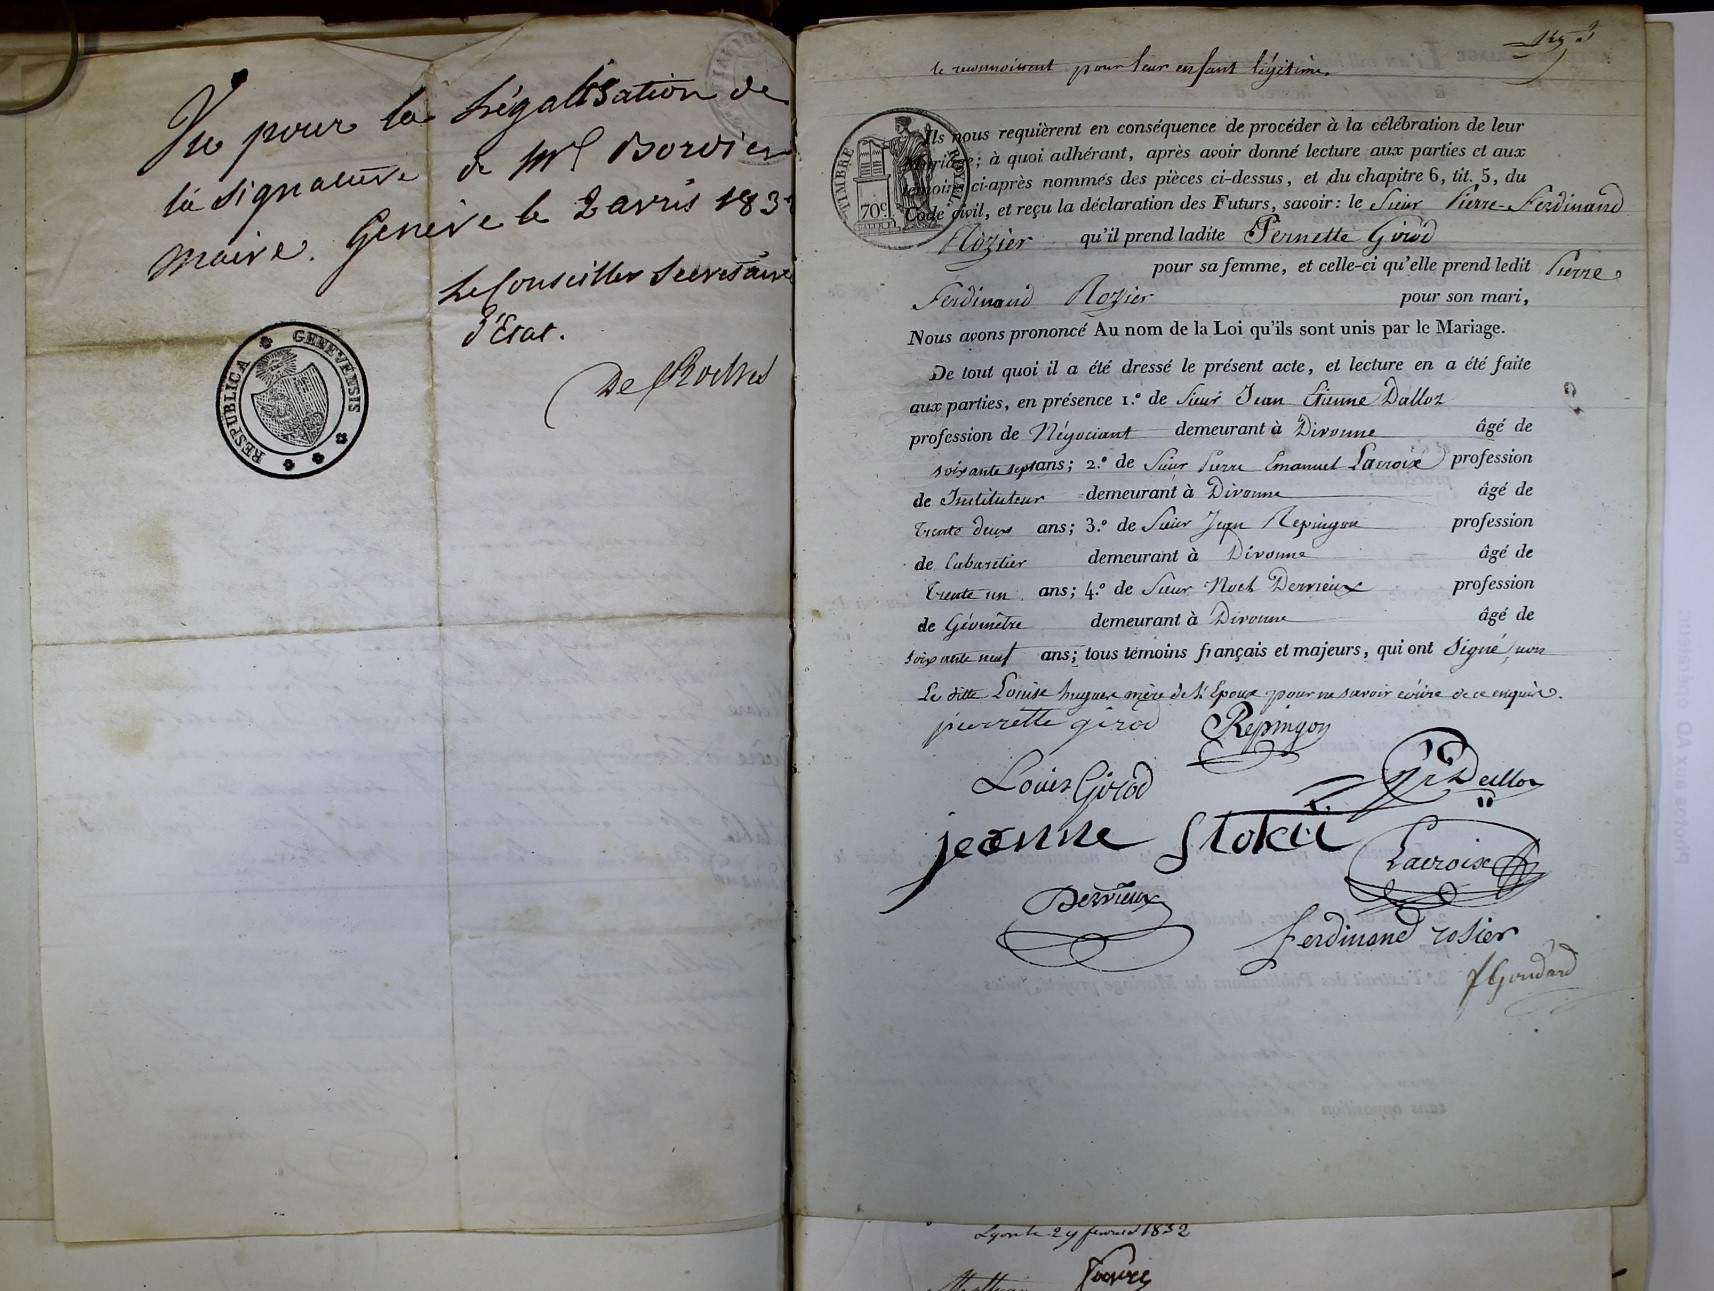 Vu pour la Légalisation de
la signature de Mr Bordier
maire. Genève le 2 avril 183
Le Conseiller Secrétaire
d'Etat.
De Roches
RESPUBLICA GENEVENSIS
le reconnoissent pour leur enfant légitime.
TIMBRE ROYAL
70c
Ils nous requièrent en conséquence de procéder à la célébration de leur
Mariage; à quoi adhérant, après avoir donné lecture aux parties et aux
témoins ci-après nommés des pièces ci-dessus, et du chapitre 6, tit. 5, du
Code civil, et reçu la déclaration des Futurs, savoir: le Sieur Pierre-Ferdinand
Rozier qu'il prend ladite Pernette Girod
pour sa femme, et celle-ci qu'elle prend ledit Pierre
Ferdinand Rozier pour son mari,
Nous avons prononcé Au nom de la Loi qu'ils sont unis par le Mariage.
De tout quoi il a été dressé le présent acte, et lecture en a été faite
aux parties, en présence 1.º de Sieur Jean Etienne Dalloz
profession de Négociant demeurant à Divonne âgé de
soixante sept ans; 2.º de Sieur Pierre Emanuel Lacroix profession
de Instituteur demeurant à Divonne âgé de
trente deux ans; 3.º de Sieur Jean Repingon profession
de Cabaretier demeurant à Divonne âgé de
trente un ans; 4.º de Sieur Noel Dervieux profession
de Géomètre demeurant à Divonne âgé de
soixante neuf ans; tous témoins français et majeurs, qui ont Signé, non
La ditte Louise huguet mère de l'Epoux pour ne savoir écrire de ce enquise.
pierrette girod Repingon
Louis Girod Dalloz
jeanne
Lacroix
Dervieux
ferdinand rosier
Goudard
Lyon le 29 fevrier 1832